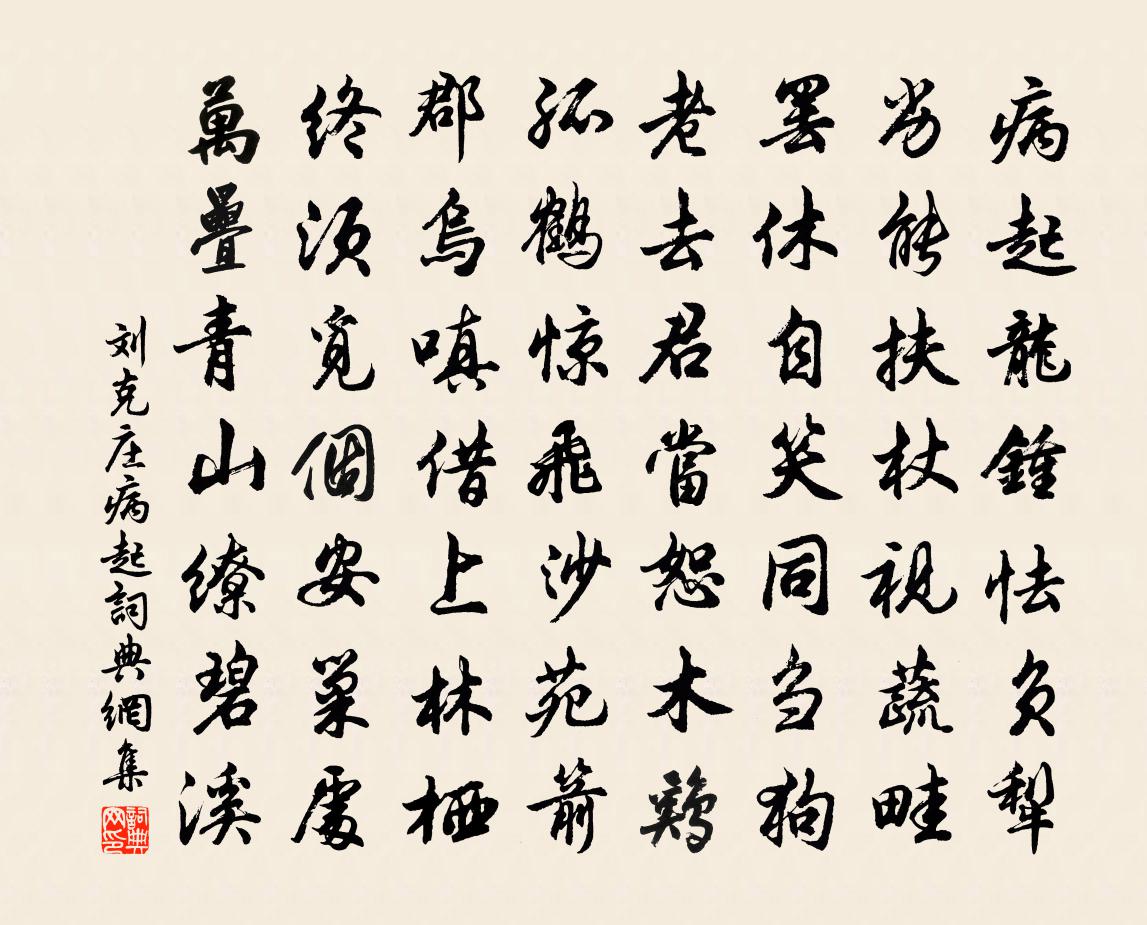 病起龍鍾怯负犁
劣能扶杖視蔬畦
罢休自笑同刍狗
老去君當恕木鷄
孤鶴惊飛沙苑箭
郡烏嗔借上林栖
終須覓個安巢處
萬疊青山繚碧溪
刘克庄病起詞典網集
詞典网印